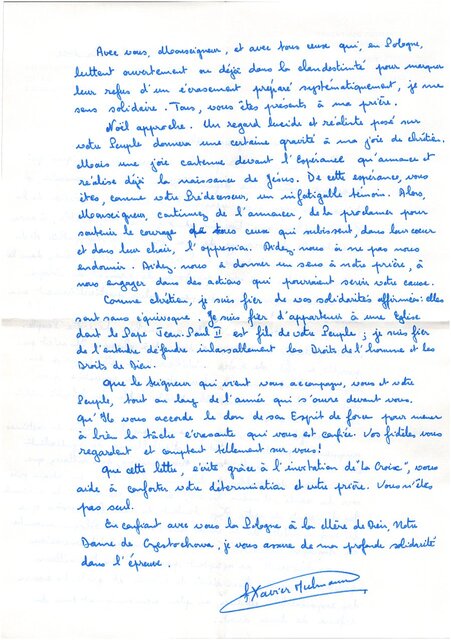 Avec vous, Monseigneur, et avec tous ceux qui, en Pologne,
luttent ouvertement ou déjà dans la clandestinité pour marquer
leur refus d'un écrasement préparé systématiquement, je me
sens solidaire. Tous, vous êtes présents à ma prière.
Noël approche. Un regard lucide et réaliste posé sur
votre Peuple donnera une certaine gravité à ma joie de chrétien.
Mais une joie contenue devant l'Espérance qu'annonce et
réalise déjà la naissance de Jésus. De cette espérance, vous
êtes, comme votre Prédécesseur, un infatigable témoin. Alors,
Monseigneur, continuez de l'annoncer, de la proclamer pour
soutenir le courage de tous ceux qui subissent, dans leur cœur
et dans leur chair, l'oppression. Aidez nous à ne pas nous
endormir. Aidez nous à donner un sens à notre prière, à
nous engager dans des actions qui pourraient servir votre cause.
Comme chrétien, je suis fier de vos solidarités affirmées : elles
sont sans équivoque. Je suis fier d'appartenir à une Eglise
dont le Pape Jean-Paul II est fils de votre Peuple ; je suis fier
de l'entendre défendre inlassablement les Droits de l'homme et les
Droits de Dieu.
Que le Seigneur qui vient vous accompagne, vous et votre
Peuple, tout au long de l'année qui s'ouvre devant vous.
Qu'Il vous accorde le don de son Esprit de force pour mener
à bien la tâche écrasante qui vous est confiée. Vos fidèles vous
regardent et comptent tellement sur vous !
Que cette lettre, écrite grâce à l'invitation de "La Croix", vous
aide à conforter votre détermination et votre prière. Vous n'êtes
pas seul.
En confiant avec vous la Pologne à la Mère de Dieu, Notre
Dame de Czestochowa, je vous assure de ma profonde solidarité
dans l'épreuve.
Xavier